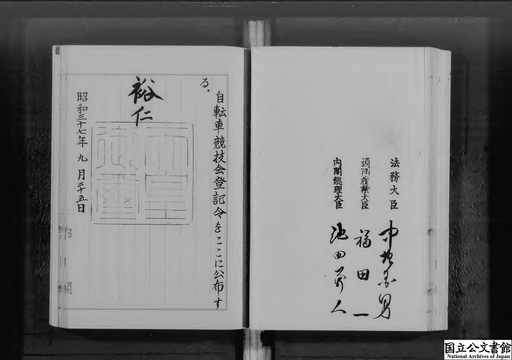 自転車競技会登記令をここに公布す
る。
裕仁
昭和三十七年九月二十五日
法務大臣 中垣國男
通商産業大臣 福田一
内閣総理大臣 池田勇人
国立公文書館
National Archives of Japan